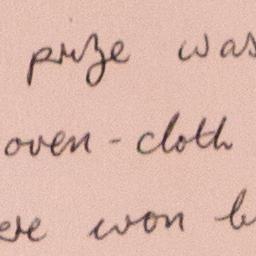 prize was
oven-cloth
ere won b